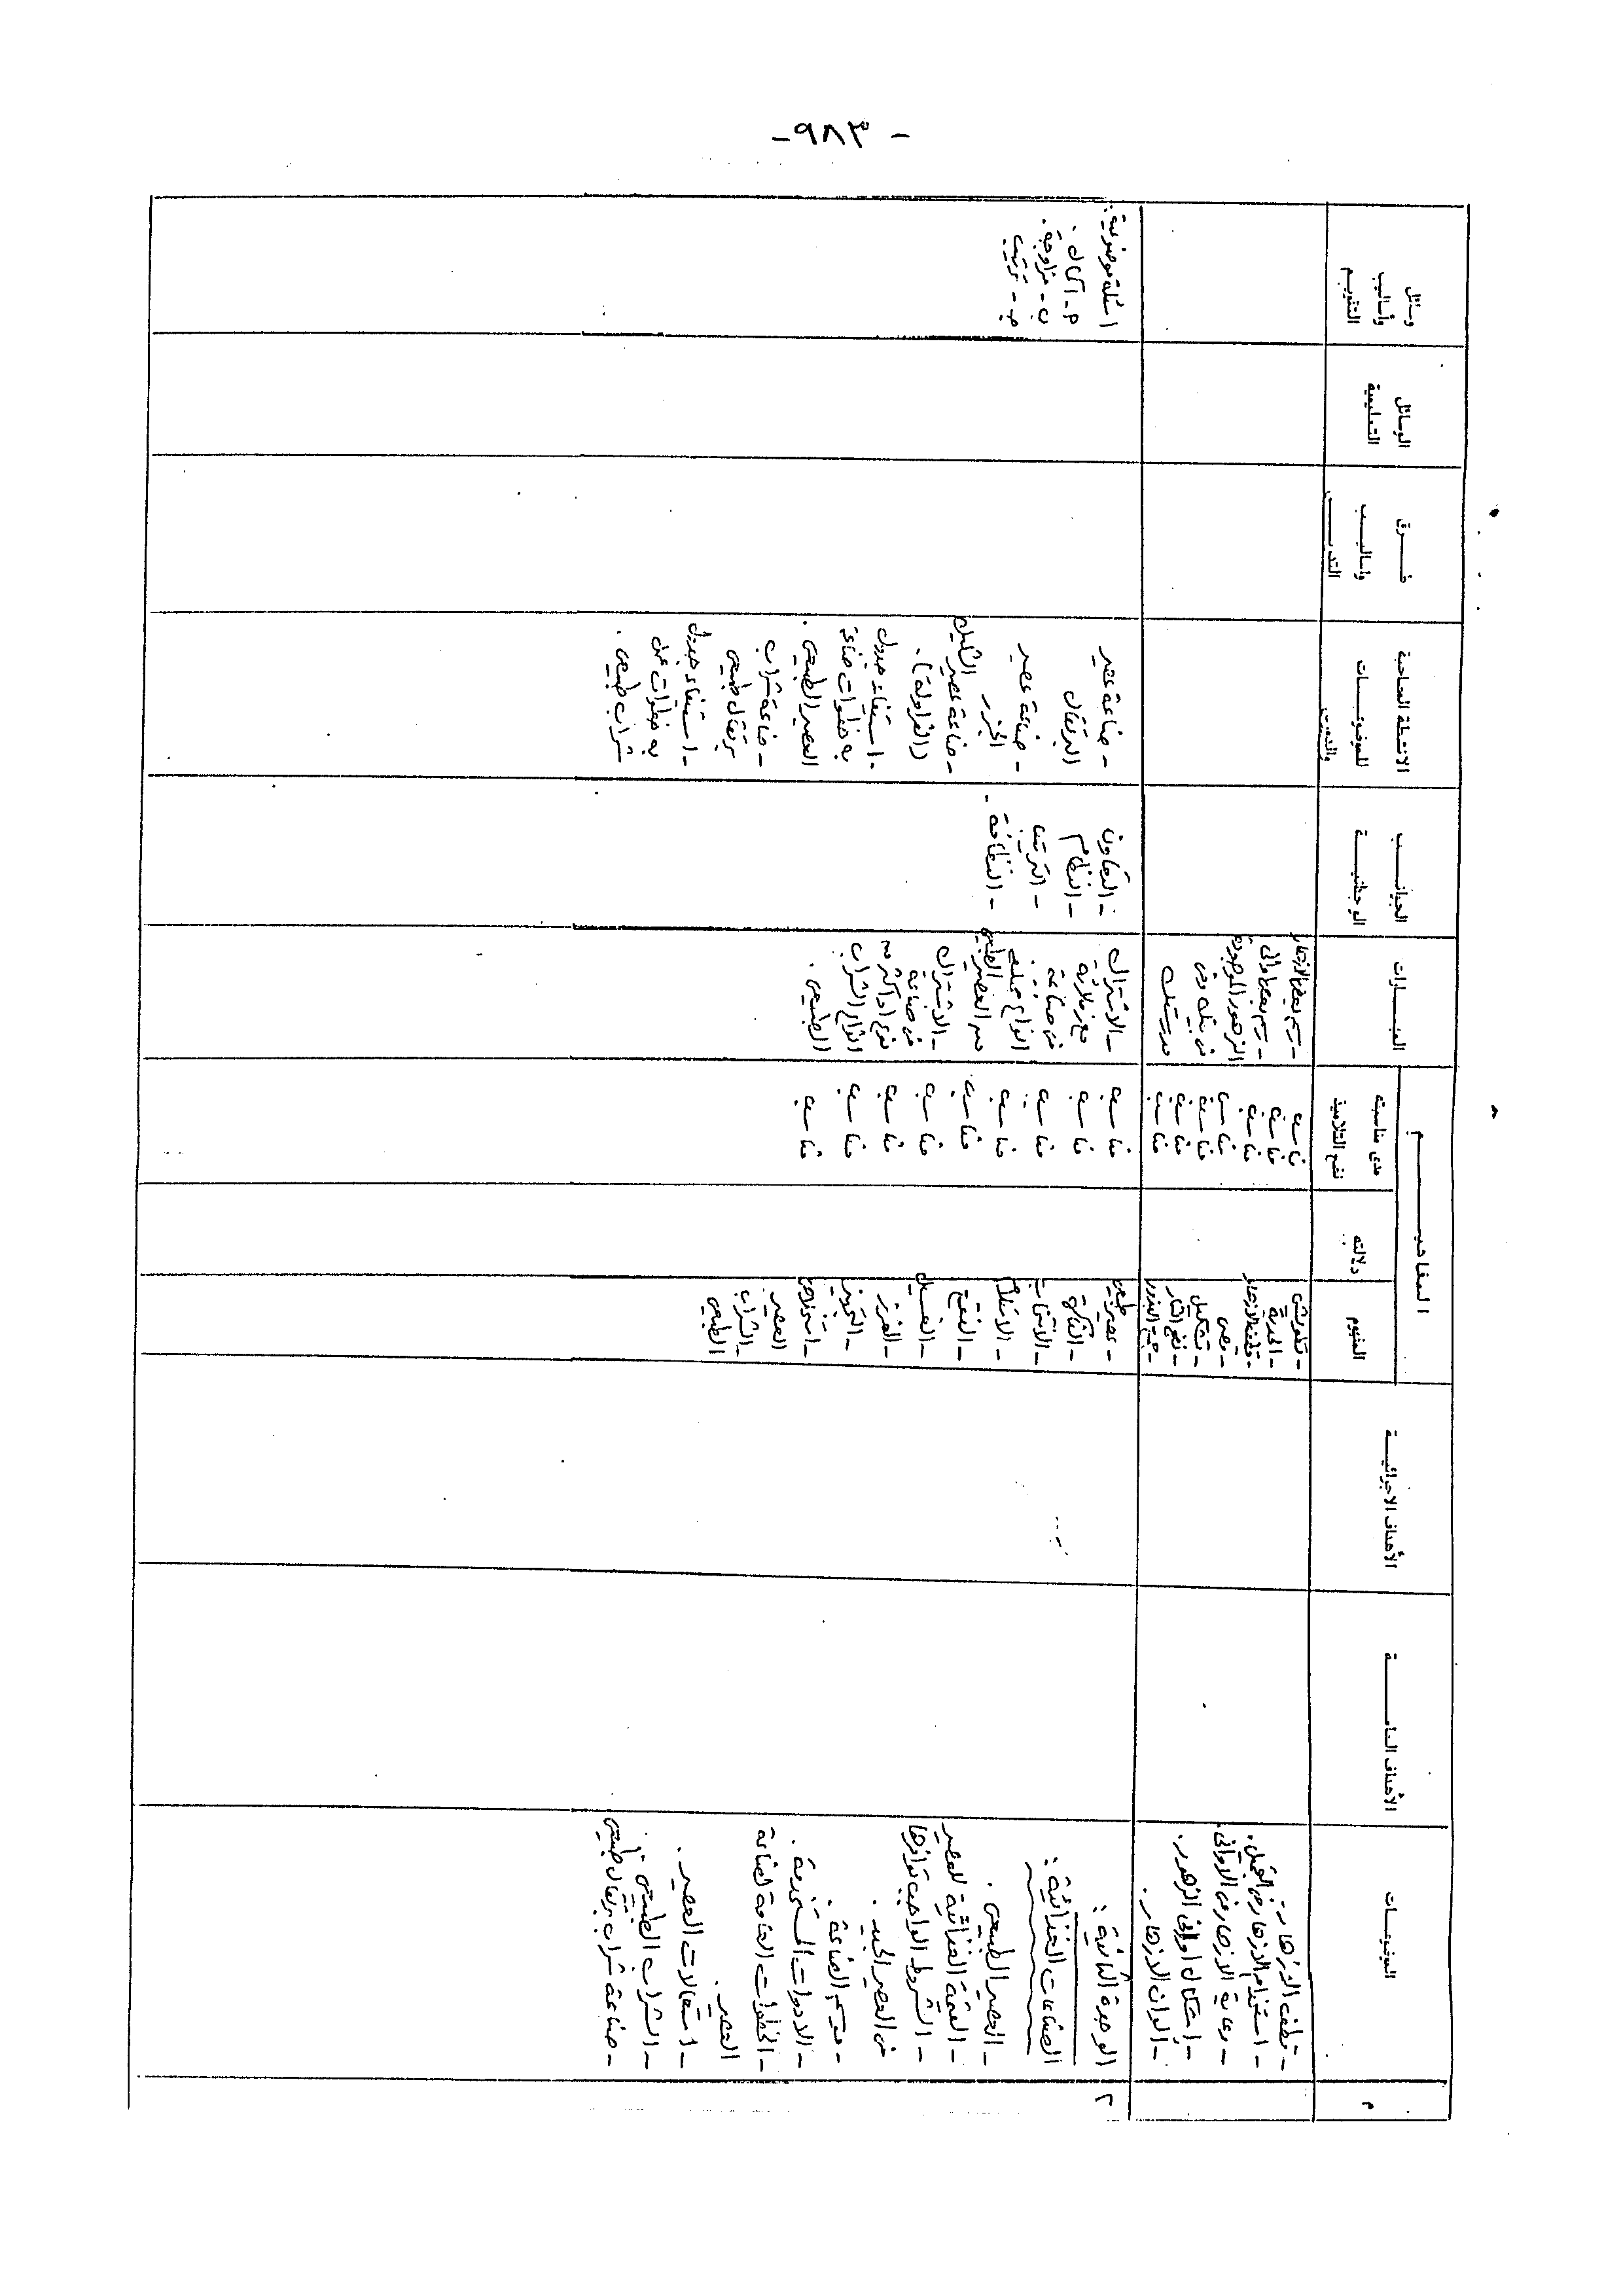 - ٩٨٣ -
م
الموضوعات
الأهداف العامة
الأهداف الاجرائية
المفاهيم
المفهوم
دلالته
مدى مناسبته
نضج التلاميذ
المهارات
الجوانب
الوجدانية
الانشطة المصاحبة
للموضوعات
والدروس
طرق
واساليب
التدريس
الوسائل
التعليمية
وسائل
وأساليب
التقويم
- قطف الازهار .
- استخدام الازهار فى التجميل .
- رعاية الازهار فى الاوانى .
- إشكال اوانى الزهور .
- الوان الازهار .
- الحديقة
- قطف الازهار
- قص
- تشكيل
- جمع البذور
مناسب
مناسب
مناسب
مناسب
مناسب
مناسب
مناسب
- رسم بعض الازهار
- رسم بعض اوانى
الزهور الموجودة
فى بيته وفى
مدرسته
٢
الوحدة الثانية :
الصناعات الغذائية :
- العصير الطبيعى .
- القيمة الغذائية للعصير
- الشروط الواجب توافرها
فى العصير الجيد .
- موسم الصناعة .
- الادوات المستخدمة .
- الخطوات العامة لصناعة
العصير .
- استعمالات العصير .
- الشراب الطبيعى .
- صناعة شراب برتقال طبيعى
- عصير طبيعى
- الفاكهة
- الانتخاب
- الاستلام
- النقع
- الغسيل
- الفرز
- التجهيز
- استخلاص
العصير
- الشراب
الطبيعى
مناسب
مناسب
مناسب
مناسب
مناسب
مناسب
مناسب
مناسب
مناسب
- الاشتراك
مع زملائه
فى صناعة
انواع مختلفة
من العصير الطبيعى
- الاشتراك
فى صناعة
نوع او اكثر من
انواع الشراب
الطبيعى .
- التعاون
- النظام
- الترتيب
- النظافة .
- صناعة عصير
البرتقال
- صناعة عصير
الجزر
- صناعة عصير الشليك
( الفراولة ) .
- استيفاء جدول
به خطوات صناعة
العصير الطبيعى .
- صناعة شراب
برتقال طبيعى
- استيفاء جدول
به خطوات عمل
شراب طبيعى .
اسئلة موضوعية :
أ - اكمال .
ب - مزاوجة .
جـ - ترتيب